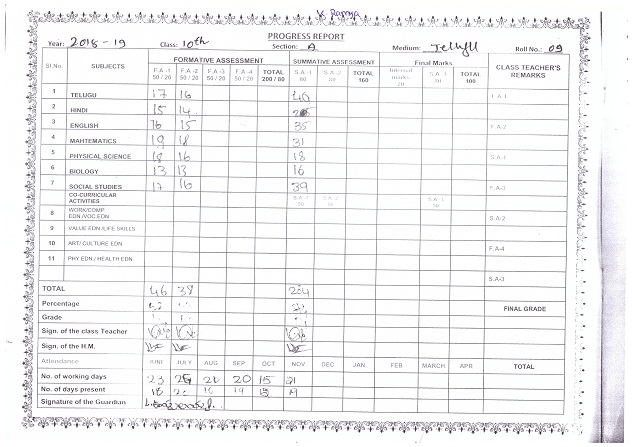 K. Ramya
PROGRESS REPORT
Year: 2018-19 Class: 10th Section: A Medium: Roll No.: 09
Sl.No. SUBJECTS FORMATIVE ASSESSMENT SUMMATIVE ASSESSMENT Final Marks CLASS TEACHER'S REMARKS
F.A-1 50/20 F.A-2 50/20 F.A-3 50/20 F.A-4 50/20 TOTAL 200/80 S.A-1 80 S.A-2 80 TOTAL 160 Internal marks 20 S.A-3 80 TOTAL 100
1 TELUGU 17 16 40 F.A-1
2 HINDI 15 14
3 ENGLISH 16 15 35 F.A-2
4 MAHTEMATICS 19 18 31
5 PHYSICAL SCIENCE 18 16 18 S.A-1
6 BIOLOGY 13 13 16
7 SOCIAL STUDIES 17 16 39 F.A-3
CO-CURRICULAR ACTIVITIES S.A-1 50 S.A-2 50 S.A-3 50
8 WORK/COMP EDN./VOC.EDN S.A-2
9 VALUE EDN /LIFE SKILLS
10 ART/ CULTURE EDN F.A-4
11 PHY.EDN / HEALTH EDN
S.A-3
TOTAL 46 38 204
Percentage FINAL GRADE
Grade
Sign. of the class Teacher
Sign. of the H.M.
Attendance JUNE JULY AUG SEP OCT NOV DEC JAN FEB MARCH APR TOTAL
No. of working days 23 20 15 21
No. of days present 18 19 19
Signature of the Guardian